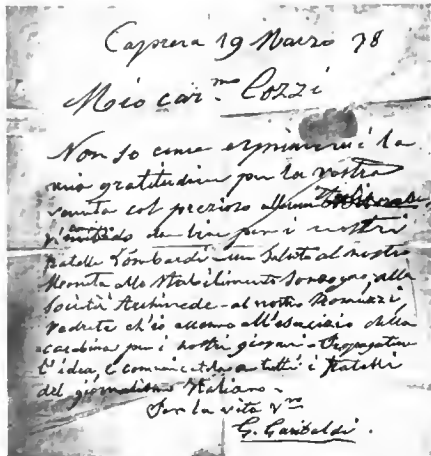 Caprera 19 Marzo 78
Mio car.mo Cozzi
Non so come esprimervi la
mia gratitudine per la vostra
venuta col prezioso album
da voi per i nostri
fratelli Lombardi - un saluto al nostro
allo Stabilimento Sonzogno, alla
Società Archimede - al nostro
Vedrete ch'io accenno all'esercizio della
carabina per i nostri giovani - Propagate
l'idea, e comunicatela a tutti i fratelli
del giornalismo Italiano -
Per la vita V.ro
G. Garibaldi.